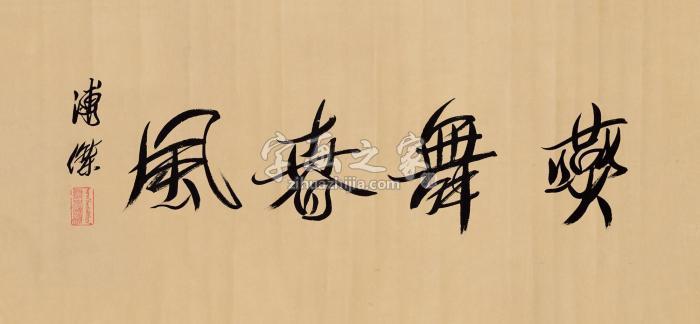 燕舞春風
溥傑
字画之家
zihuazhijia.com